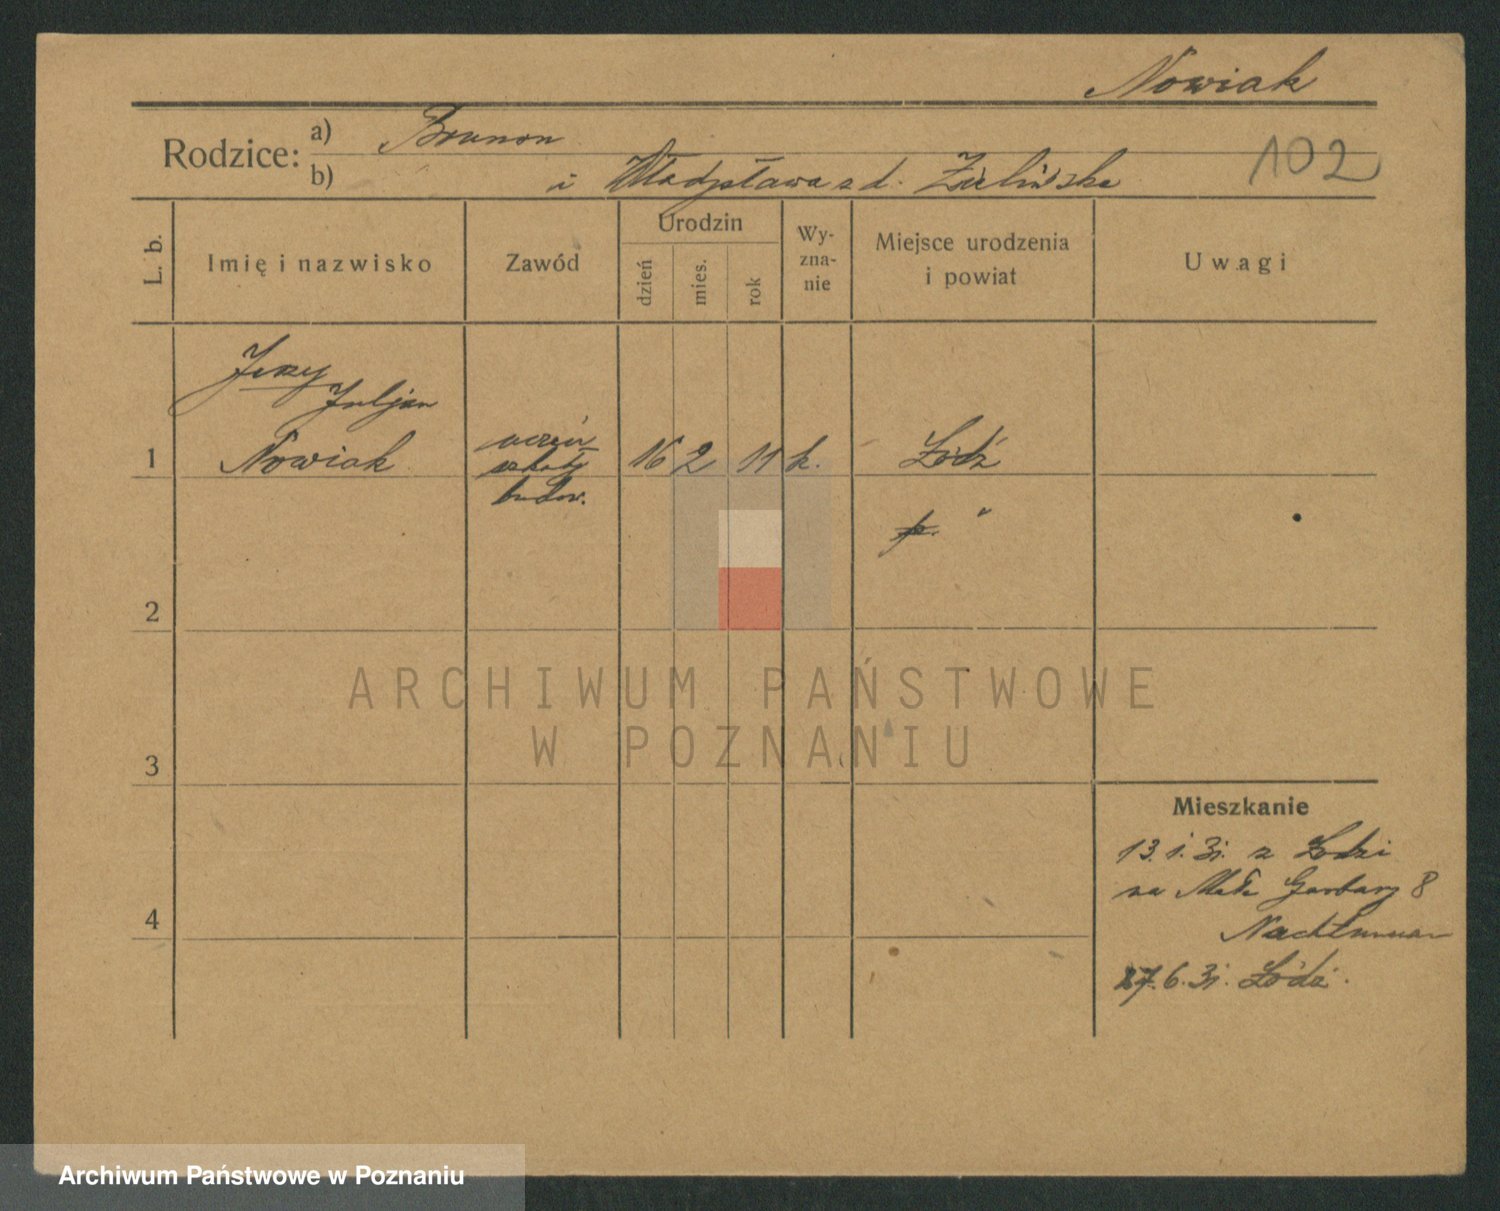 Nowiak
Rodzice: a) Brunon
b) i Władysława z d. Zielińska
102
L. b.
Imię i nazwisko
Zawód
Urodzin
dzień
mies.
rok
Wy-
zna-
nie
Miejsce urodzenia
i powiat
Uwagi
Jerzy
Juljan
1 Nowiak
uczeń
szkoły
budow.
16 2 11 k.
Łódź
p. "
2
3
4
ARCHIWUM PAŃSTWOWE
W POZNANIU
Mieszkanie
13.1.31. z Łodzi
na Małe Garbary 8
27.6.31. Łódź.
Archiwum Państwowe w Poznaniu